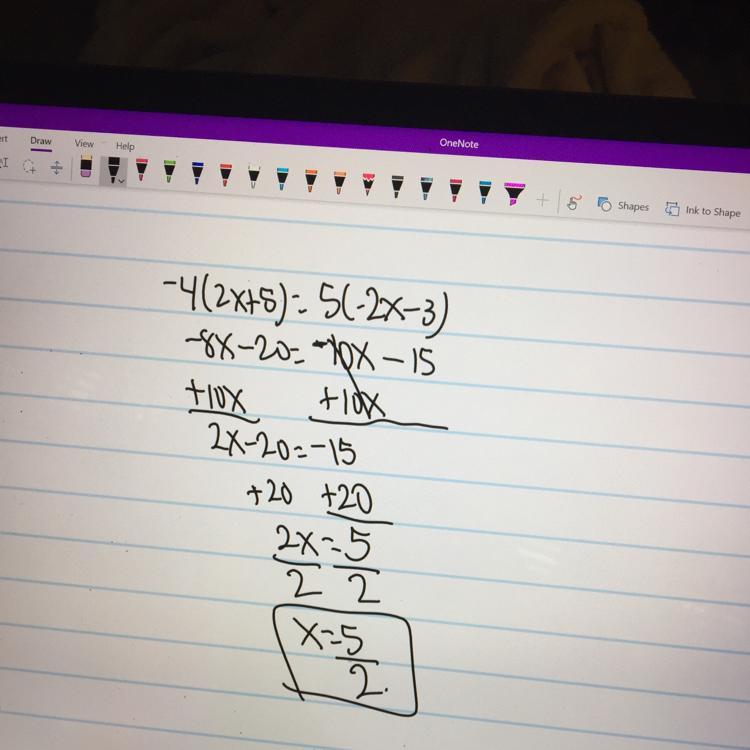 OneNote
rt Draw View Help
Shapes Ink to Shape
-4(2x+5)=5(-2x-3)
-8x-20=-10x-15
+10x +10x
2x-20=-15
+20 +20
2x=5
2 2
x=5
2